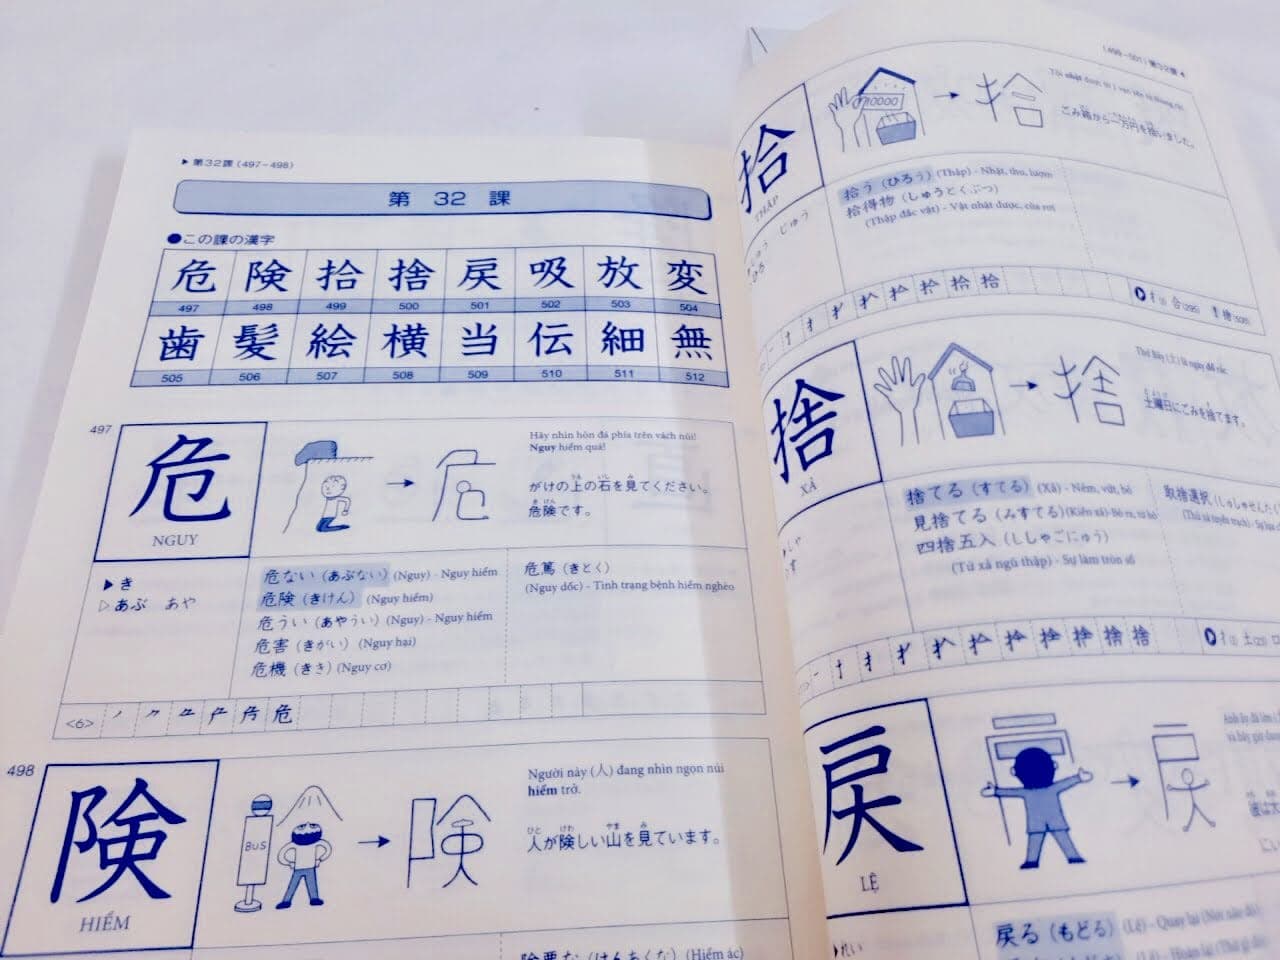 ▶第32課(497-498)
第 32 課
●この課の漢字
危 険 拾 捨 戻 吸 放 変
497 498 499 500 501 502 503 504
歯 髪 絵 横 当 伝 細 無
505 506 507 508 509 510 511 512
497
危
NGUY
Hãy nhìn hòn đá phía trên vách núi!
Nguy hiểm quá!
がけの上の石を見てください。
危険です。
▶き
▷あぶ あや
危ない(あぶない)(Nguy) - Nguy hiểm
危険(きけん)(Nguy hiểm)
危うい(あやうい)(Nguy) - Nguy hiểm
危害(きがい)(Nguy hại)
危機(きき)(Nguy cơ)
危篤(きとく)
(Nguy dốc) - Tình trạng bệnh hiểm nghèo
<6>
498
険
HIỂM
BUS
Người này (人) đang nhìn ngọn núi
hiểm trở.
人が険しい山を見ています。
険悪な(けんあくな)(Hiểm ác)
(499-501)第32課◀
拾
THẬP
10000
拾
ごみ箱から一万円を拾いました。
しゅう じゅう
ひろ
拾う(ひろう)(Thập) - Nhặt, thu, lượm
拾得物(しゅうとくぶつ)
(Thập đắc vật) - Vật nhặt được, của rơi
扌 合(295) 捨(500)
捨
XẢ
捨
Thứ Bảy (土) là ngày đổ rác.
土曜日にごみを捨てます。
しゃ
す
捨てる(すてる)(Xả) - Ném, vứt, bỏ
見捨てる(みすてる)(Kiến xả)- Bỏ ra, từ bỏ
四捨五入(ししゃごにゅう)
(Tứ xả ngũ thập) - Sự làm tròn số
取捨選択(しゅしゃせんたく
扌 土(23)
戻
LỆ
▶れい
戻る(もどる)(Lệ) - Quay lại